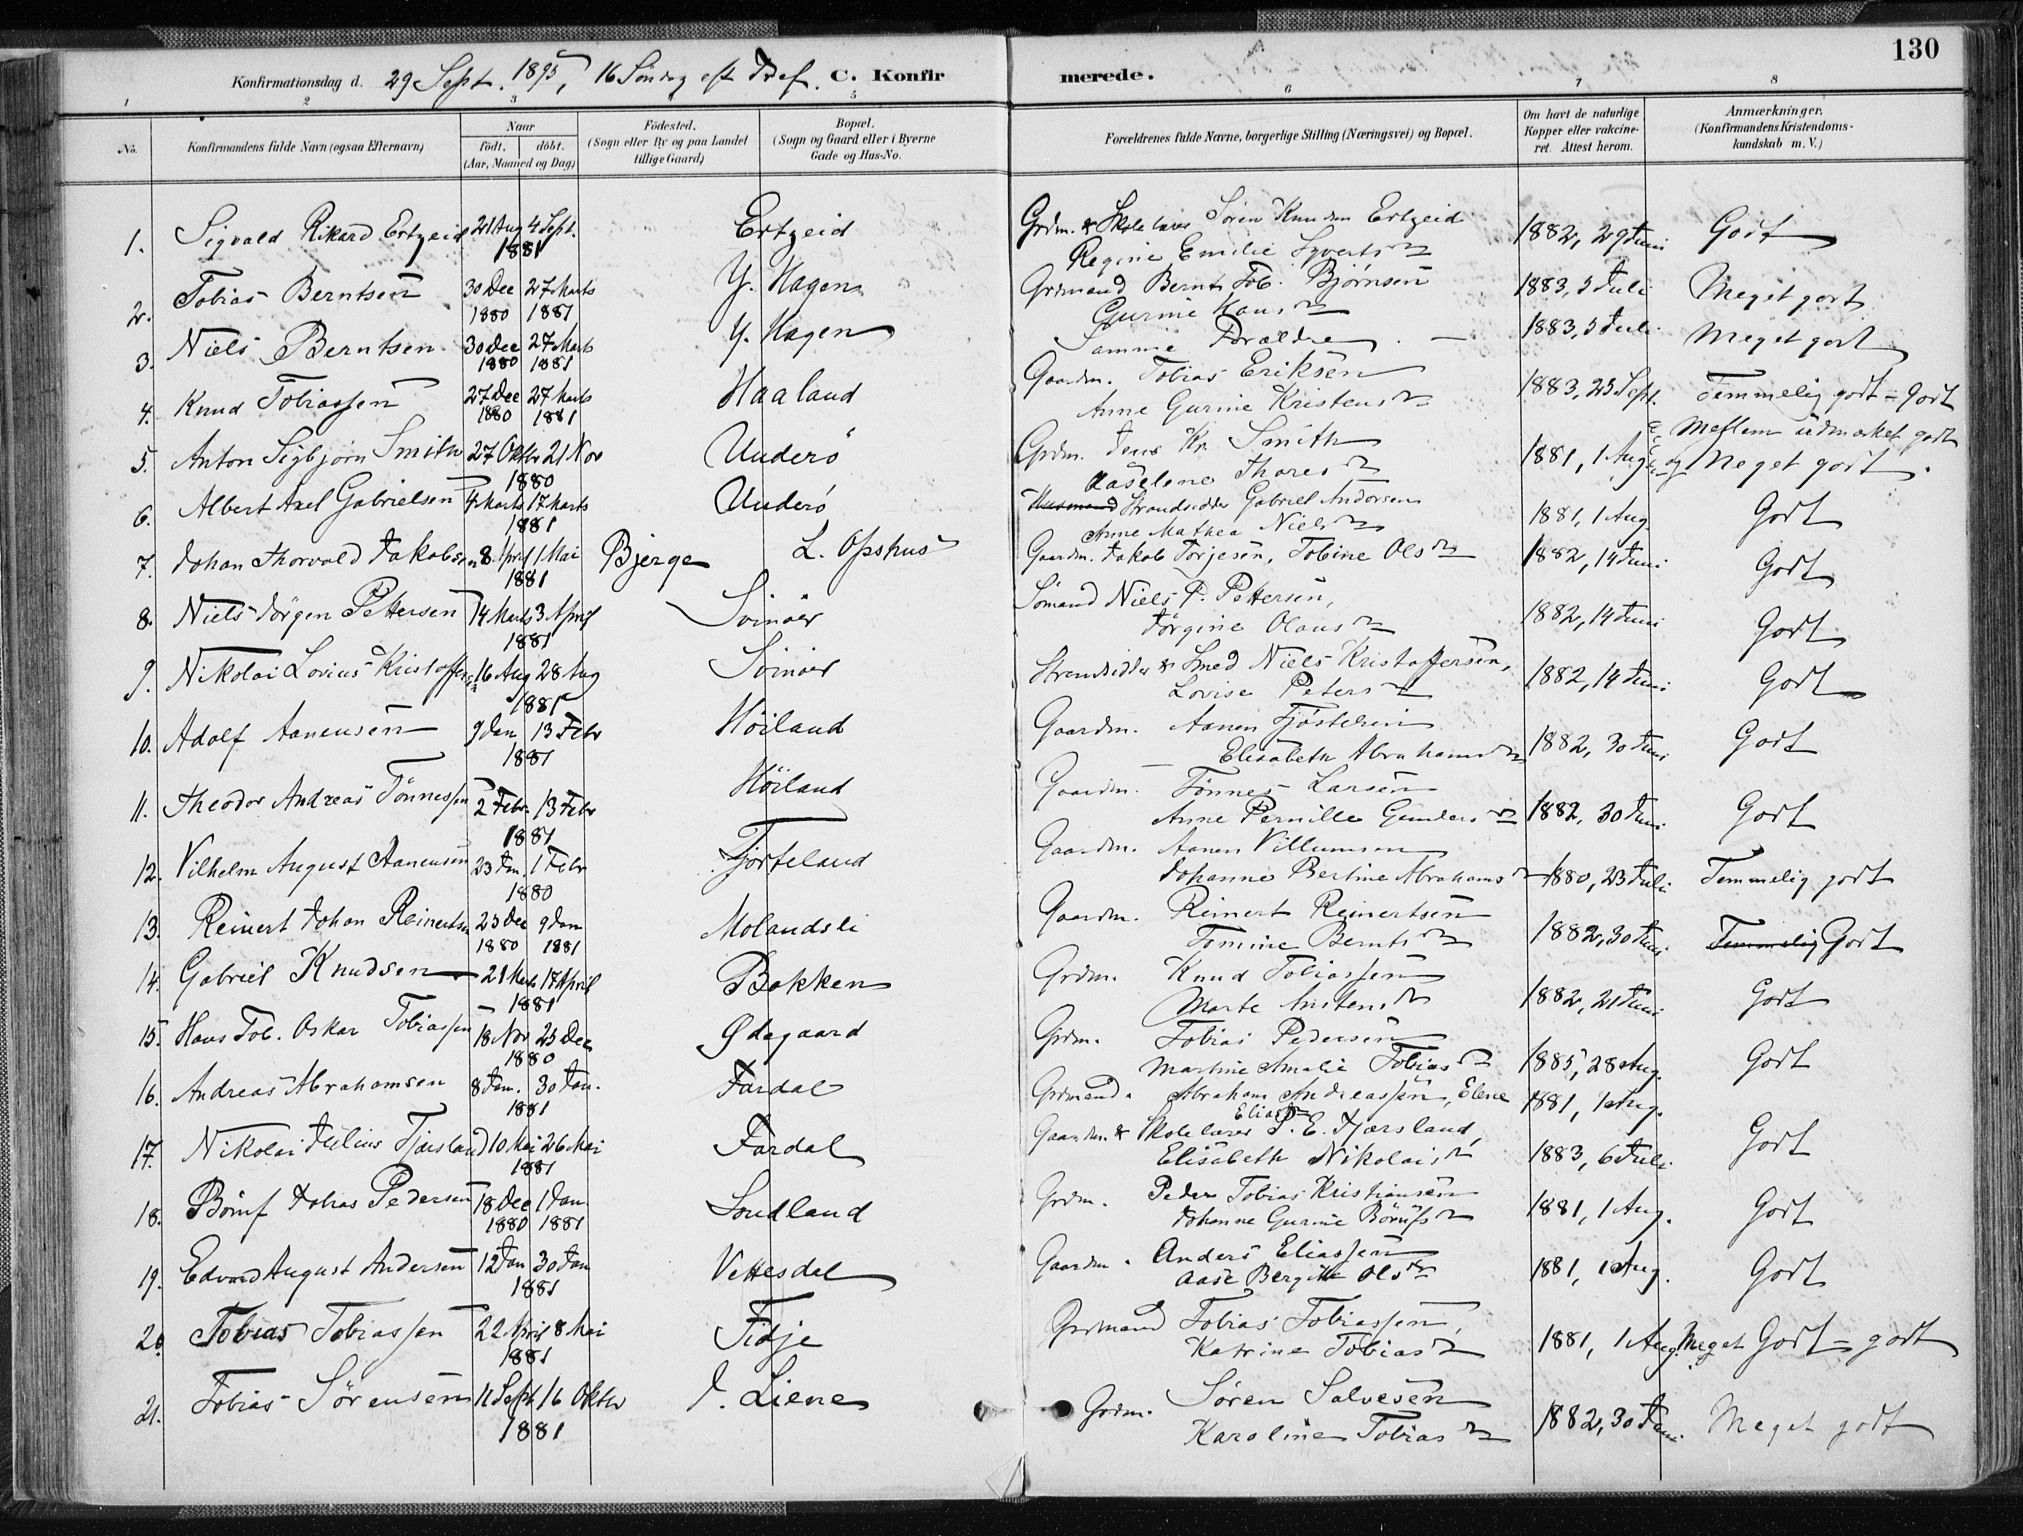 130
Konfirmationsdag d. 29 Sept. 1895, 16 Søndag eft Tref. C. Konfir merede.
1 2 3 4 5 6 7 8
No.
Konfirmandens fulde Navn (ogsaa Efternavn)
Naar
født. døbt.
(Aar, Maaned og Dag)
Fødested.
(Sogn eller By og paa Landet
tillige Gaard)
Bopæl.
(Sogn og Gaard eller i Byerne
Gade og Hus-No.
Forældrenes fulde Navne, borgerlige Stilling (Næringsvei) og Bopæl.
Om havt de naturlige
Kopper eller vakcine-
ret. Attest herom.
Anmærkninger.
(Konfirmandens Kristendoms-
kundskab m. V.)
1. Sigvald Rikard Ertzeid 21 Aug 4 Sept. 1881 Ertzeid Grdm. & Skolelærer Sören Knudsen Ertzeid
Regine Emilie Syvertsdr 1882, 29 Juni Godt
2. Tobias Berntsen 30 Dec 1880 27 Marts 1881 Y. Hagen Grdmand Bernt Tob. Bjørnsen
Gurine Hansdr 1883, 5 Juli Meget godt
3. Niels Berntsen 30 Dec 1880 27 Marts 1881 Y. Hagen Samme Forældre. — 1883, 5 Juli Meget godt
4. Knud Tobiassen 27 Dec 1880 27 Marts 1881 Haaland Gaardm. Tobias Eriksen
Anne Gurine Kristensdr 1883, 25 Sept. Temmelig godt = godt
5. Anton Sigbjørn Smith 27 Oktbr 21 Nov 1880 Underö Grdm. Jens Kr. Smith
Aaselene Thoresdr 1881, 1 Aug Mellem udmærket godt
og Meget godt.
6. Albert Axel Gabrielsen 4 Marts 17 Marts 1881 Underö Husmand Strandsidder Gabriel Andersen
Anne Mathea Nielsdr 1881, 1 Aug Godt
7. Johan Thorvald Jakobsen 8 April 1 Mai 1881 Bjerge L. Ofshus Gaardm. Jakob Torjesen, Tobine Olsdr 1882, 14 Juni Godt
8. Niels Jörgen Pettersen 14 Marts 3 April 1881 Svinöer Sömand Niels P. Pettersen,
Jörgine Olausdr 1882, 14 Juni Godt
9. Nikolai Lovius Kristoffersen 16 Aug 28 Aug 1881 Svinöer Strandsidder & Smed Niels Kristoffersen,
Lovise Petersdr 1882, 14 Juni Godt
10. Adolf Aanensen 9 Jan 13 Febr 1881 Höiland Gaardm. Aanen Fjöstelsen
Elisabeth Abrahamsdr 1882, 30 Juni Godt
11. Theodor Andreas Tönnessen 2 Febr. 13 Febr 1881 Höiland Gaardm. Tönnes Larsen
Anne Pernille Gundersdr 1882, 30 Juni Godt
12. Vilhelm August Aanensen 23 Jan. 1 Febr 1880 Tjorteland Gaardm. Aanen Villumsen
Johanne Bertine Abrahamsdr 1880, 23 Juli Temmelig godt
13. Reinert Johan Reinertsen 23 Dec 1880 9 Jan 1881 Molandsli Gaardm. Reinert Reinertsen
Tomine Berntsdr 1882, 30 Juni Temmelig Godt
14. Gabriel Knudsen 21 Marts 17 April 1881 Bakken Grdm. Knud Tobiassen
Marte Anstensdr 1882, 21 Juni Godt
15. Hans Tob. Oskar Tobiassen 18 Nov 25 Dec 1880 Ødegaard Grdm. Tobias Pedersen
Martine Amalie Tobiasdr 1885, 28 Aug. Godt
16. Andreas Abrahamsen 8 Jan. 30 Jan. 1881 Jardal Grdmand. Abraham Andreassen, Elene
Eliasdr 1881, 1 Aug.
17. Nikolai Julius Fjærsland 10 Mai 26 Mai 1881 Jardal Gaardm. & Skolelærer P. E. Fjærsland,
Elisabeth Nikolaisdr 1883, 6 Juli Godt
18. Börnf Tobias Pedersen 18 Dec 1880 1 Jan 1881 Sondland Grdm. Peder Tobias Kristiansen
Johanne Gurine Börufsdr 1881, 1 Aug. Godt
19. Edvard August Andersen 12 Jan 30 Jan 1881 Vettesdal Gaardm. Anders Eliassen
Aase Bergitte Olsdr 1881, 1 Aug. Godt
20. Tobias Tobiassen 22 April 8 Mai 1881 Tidje Grdmand Tobias Tobiassen,
Katrine Tobiasdr 1881, 1 Aug. Meget Godt = godt
21. Tobias Sörensen 11 Sept 16 Oktbr 1881 I. Liene Grdm. Sören Salvesen
Karoline Tobiasdr 1882, 30 Juni Meget godt